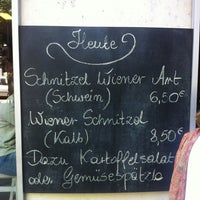 Heute
Schnitzel Wiener Art
(Schwein) 6,50€
Wiener Schnitzel
(Kalb) 8,50€
Dazu Kartoffelsalat
oder Gemüsespätzle